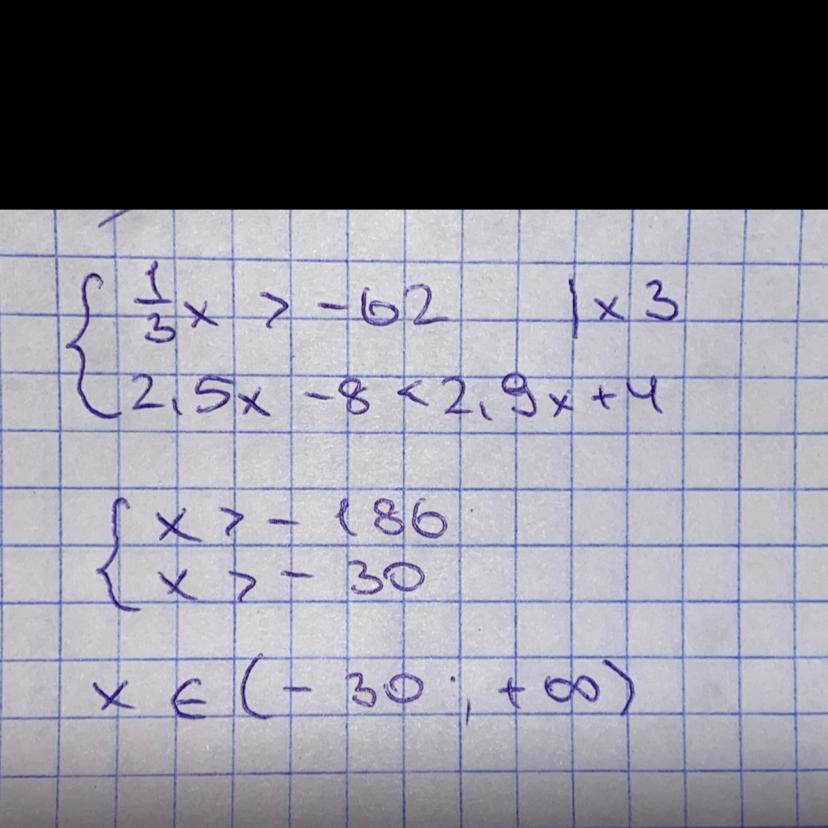 { 1/3 x > -62 | x 3
{ 2,5x - 8 < 2,9x + 4
{ x > - 186
{ x > - 30
x ∈ (- 30 ; + ∞)